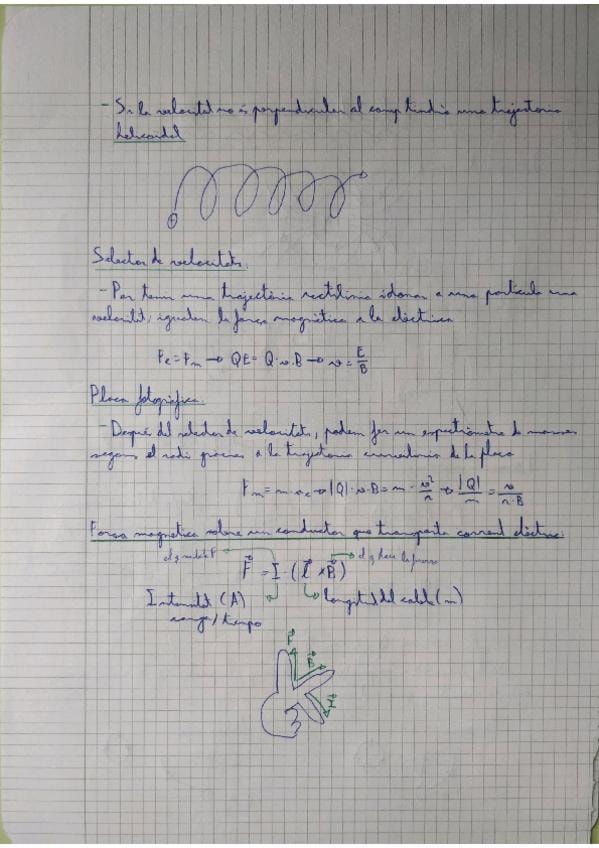 - Si la velocitat no és perpendicular al camp tindrà una trajectoria
helicoidal
+
Selector de velocitats.
- Per tenir una trajectòria rectilínia a una partícula una
velocitat, igualem la força magnètica a la elèctrica
Fe = Fm → QE = Q·v·B → v = E/B
Placa fotogràfica.
- Després del selector de velocitats, podem fer un espectròmetre de masses
segons el radi gràcies a la trajectoria de la placa
Fm = m·ac → |Q|·v·B = m·v²/r → |Q|/m = v/r·B
Força magnètica sobre un conductor que transporta corrent elèctric:
F⃗ = I·(l⃗ × B⃗)
Intensitat (A)
longitud del cable (m)
carga/tiempo
F⃗
B⃗
I⃗